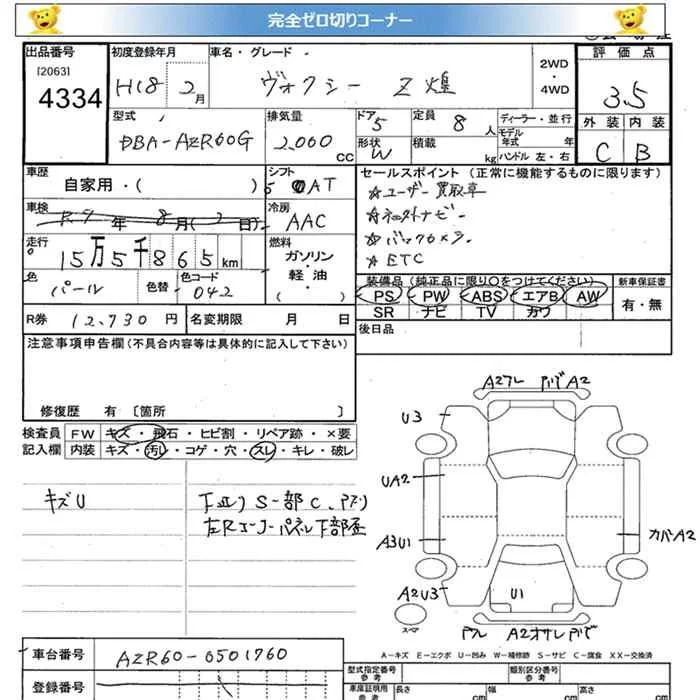 完全ゼロ切りコーナー
出品番号 初度登録年月 車名・グレード 評価点
[2063] 2WD・4WD
4334 H18 2月 ヴォクシー Z 煌 3.5
型式 排気量 ドア 定員 ディーラー・並行 外装 内装
DBA-AZR60G 2,000CC 5 8人 モデル年式 年 C B
形状 W 積載 kg ハンドル 左・右
車歴 シフト セールスポイント (正常に機能するものに限ります)
自家用・( ) AT ☆ユーザー買取車
車検 冷房 ☆社外ナビ
R7年8月(2日) AAC ☆バックカメラ
走行 燃料 ☆ETC
15万5千865km ガソリン・軽油・( )
色 色替 色コード 装備品 (純正品に限り〇をつけてください) 新車保証書
パール 042 PS PW ABS エアB AW 有・無
SR ナビ TV カワ
R券 12,730円 名変期限 月 日 後日品
注意事項申告欄(不具合内容等は具体的に記入して下さい)
修復歴 有 〔箇所 〕
検査員 FW キズ・飛石・ヒビ割・リペア跡・×要
記入欄 内装 キズ・汚レ・コゲ・穴・スレ・キレ・破レ
キズU 下廻りS 一部C
左Rコーナーパネル下部歪
A2フレ A2
U3
UA2
A3U1 カバーA2
A2U3 U1
スペア A2オサレ
A-キズ E-エクボ U-凹み W-補修跡 S-サビ C-腐食 XX-交換済
車台番号 AZR60-0501760
登録番号
型式指定番号 参考 類別区分番号 参考
車庫証明用 参考 長さ cm 幅 cm 高さ cm